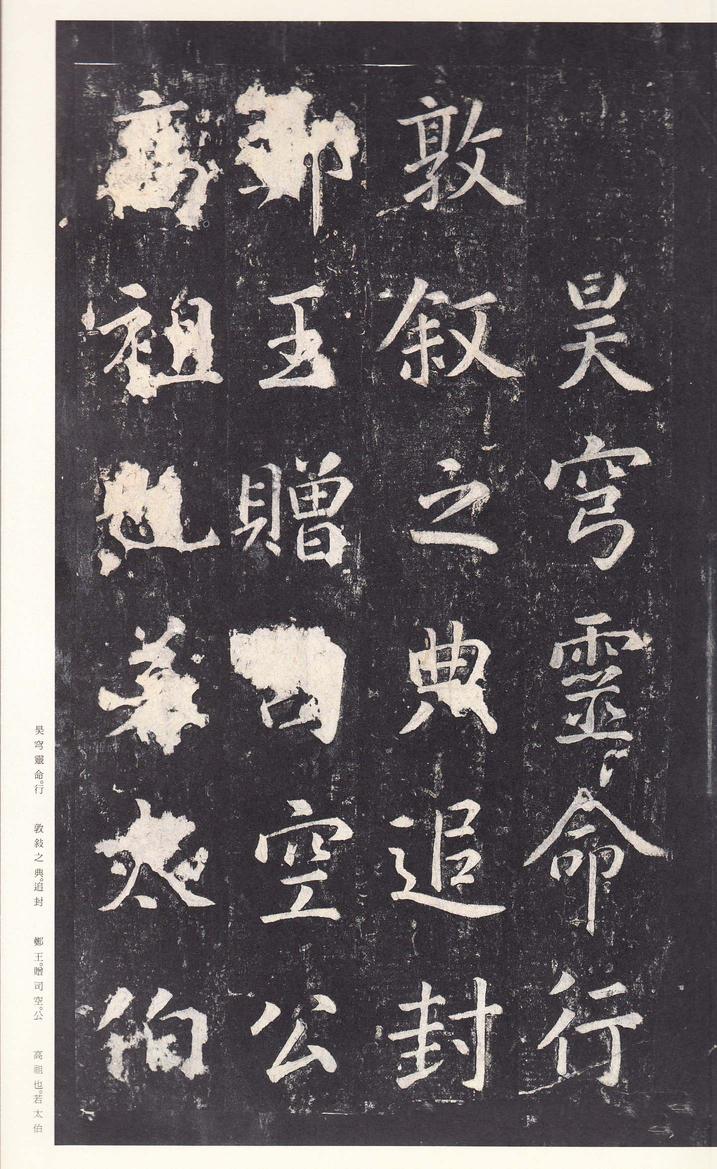 昊穹靈命行
敦敘之典追封
鄭王贈司空公
高祖也若太伯
昊穹靈命。行　敦敍之典。追封　鄭王。贈司空。公　高祖也。若太伯